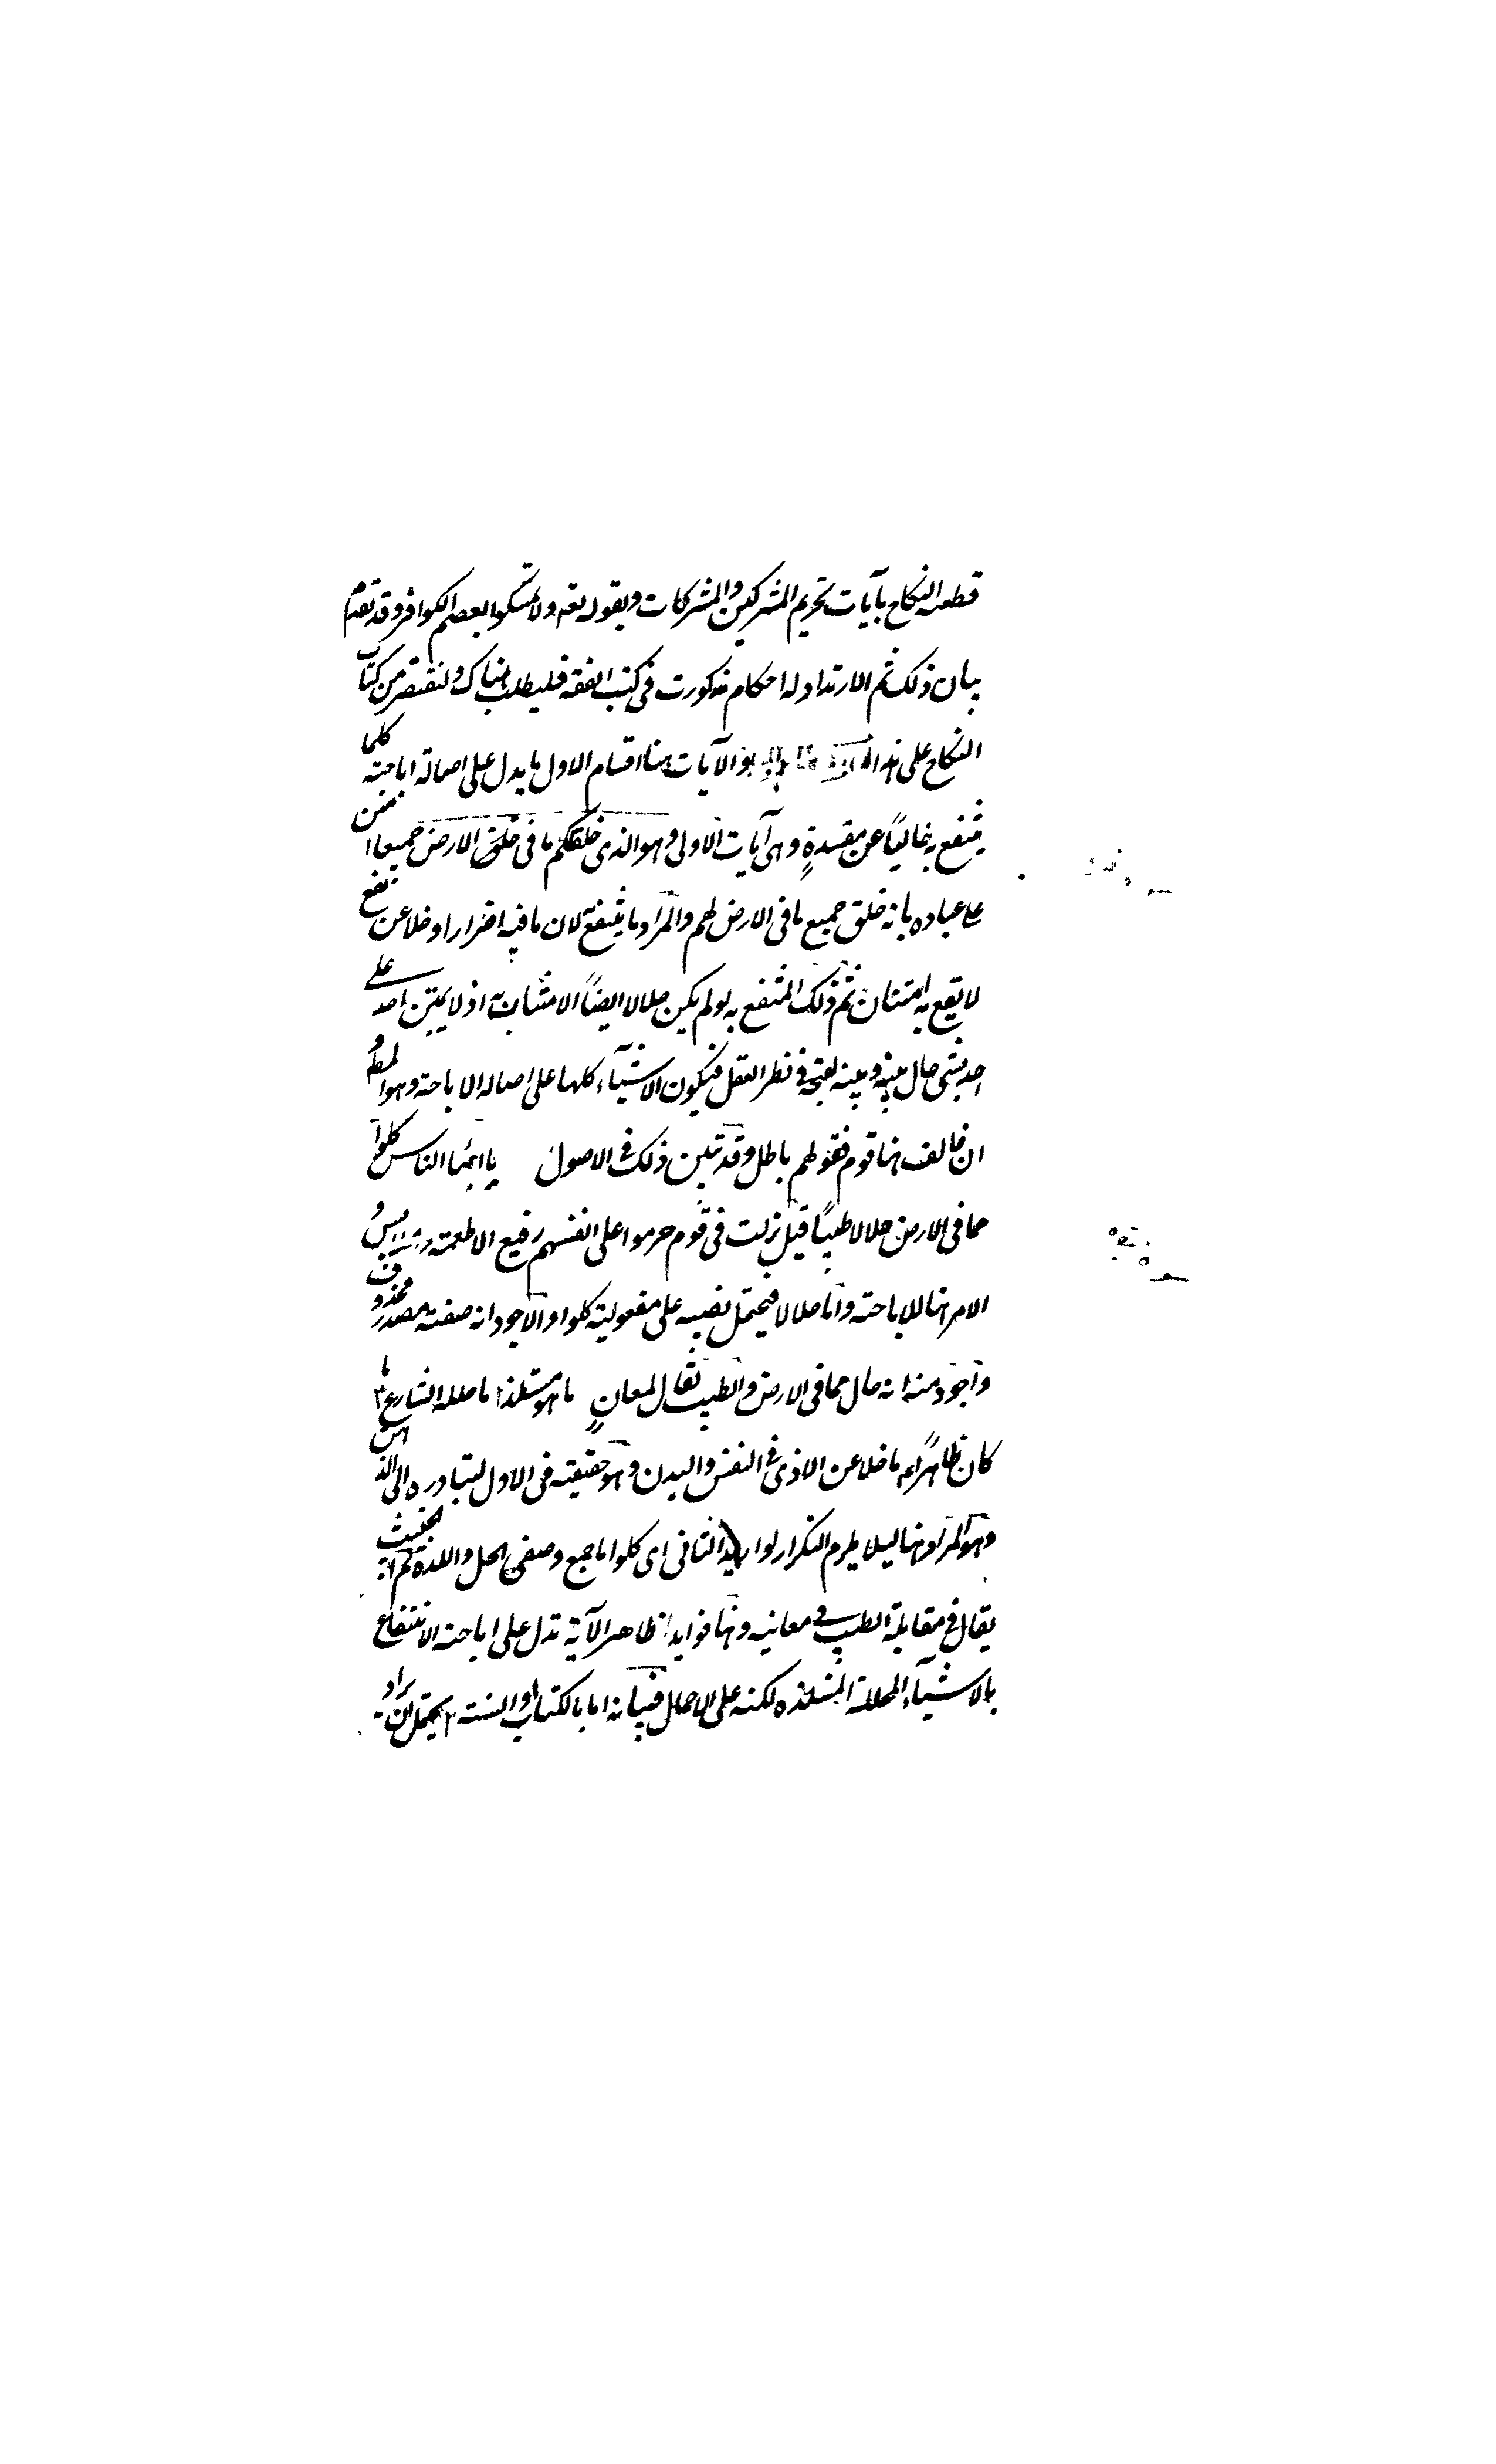 قطعه النكاح بآيات تحريم المشركين والمشركات وبقوله تعه ولا تمسكوا بعصم الكوافر وقد تقدم
بيان ذلك ثم الارتداد له احكام مذكورت فى كتب الفقه فليطلب هناك ولنقتصر من كتاب
النكاح على هذا والآيات هنا اقسام الاول ما يدل على اصالة اباحته كلما
ينتفع به خالياً عن مفسدةٍ وهى آيات الاولى وهو الذى خلق لكم ما فى الارض جميعا امتن
على عباده بانه خلق جميع ما فى الارض لهم والمراد ما ينتفع لان ما فيه اضرارا وخلا عن نفع
لا يقع به امتنان ثم ذلك المنتفع به لو لم يكن حلالا ايضاً لا امتنان به اذ لا يمتن احد على
احد بشى حال بينه وبينه لقبحه فى نظر العقل فيكون الاشيآء كلها على اصاله الاباحته وهو المطو
ان خالف هنا قوم فقولهم باطل وقد تبين ذلك فى الاصول يا ايها الناس كلوا
مما فى الارض حلالا طيباً قيل نزلت فى قوم حرموا على انفسهم رفيع الاطعمته و
الامر هنا للاباحته واما حلالا فيحتمل نصبه على مفعولية كلوا والاجود انه صفته مصدر محذوف
واجود منه انه حال مما فى الارض والطيب يقال لمعانٍ ما هو مستلذ ا ما حلله الشارع ٣ ما
كان طاهراً ۴ ما خلا عن الاذى فى النفس والبدن وهو حقيقته فى الاول لتبادره الى الذهن
وهو المراد هنا ليلا يلزم التكرار لو اريد الثانى اى كلوا ما جمع وصفى الحل واللذة ثم الخبيث
يقال فى مقابلة الطيب فى معانيه وهنا فوايد ا ظاهر الآية تدل على اباحته الانتفاع
بالاشيآء المحللة المستلذه لكنه على الاجمال فبيانه اما بالكتاب او السنته ٢ يحتمل ان يراد